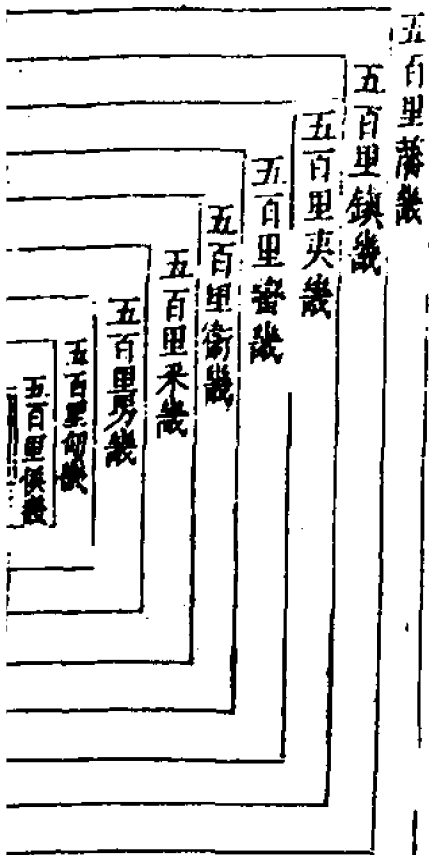 五百里藩畿
五百里鎮畿
五百里夷畿
五百里蠻畿
五百里衛畿
五百里采畿
五百里男畿
五百里甸畿
五百里侯畿